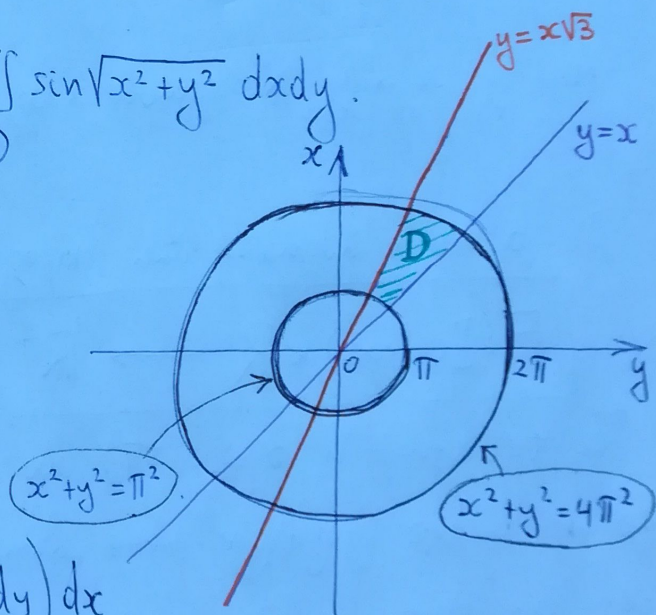 y=x√3
∫ sin√(x²+y²) dxdy.
y=x
x
D
0 π 2π
y
x²+y²=π²
x²+y²=4π²
dy) dx